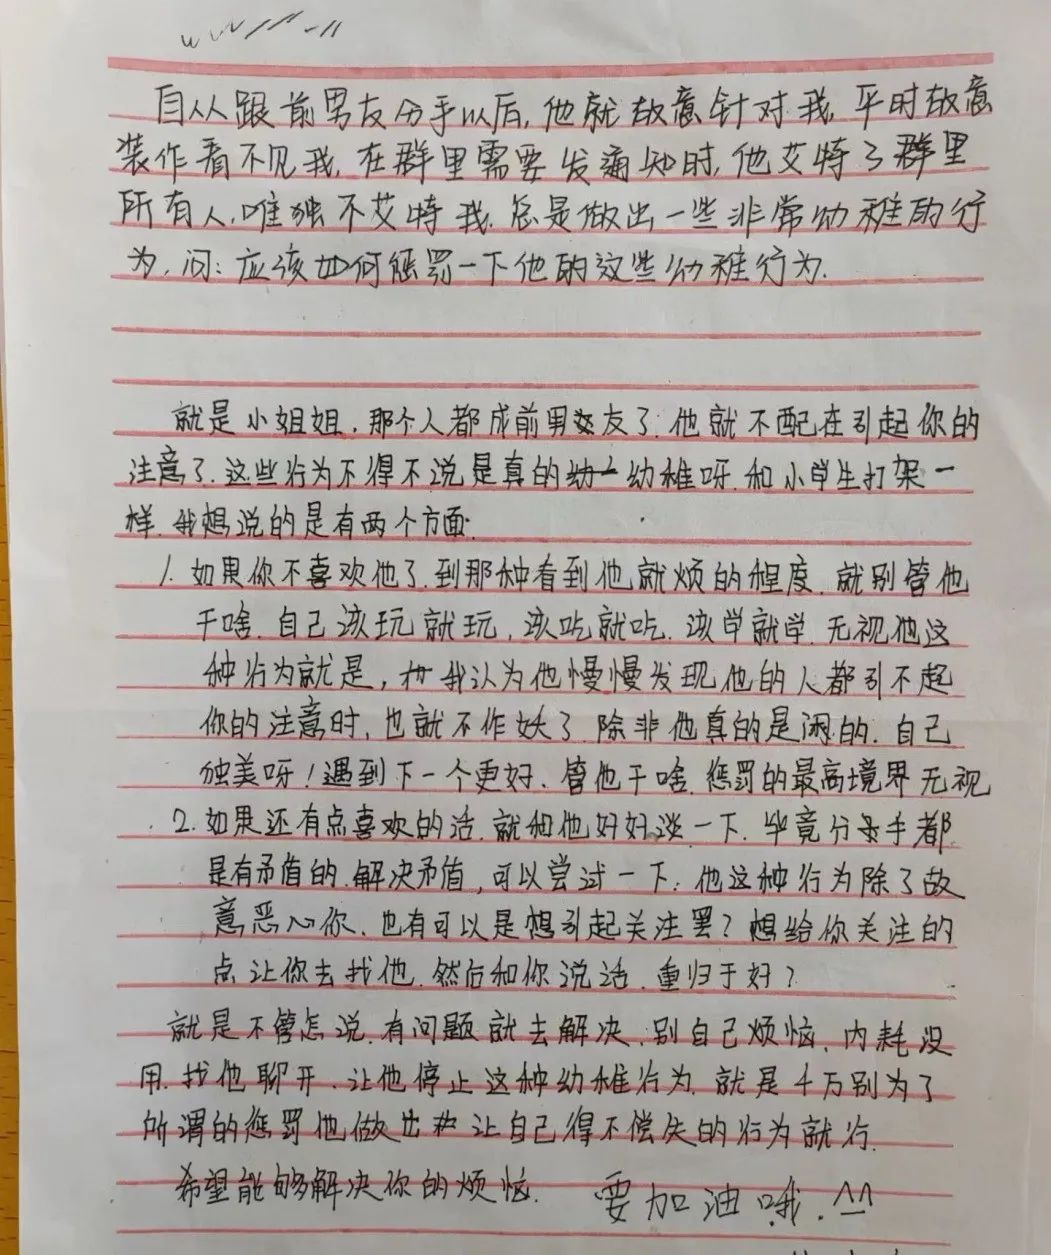 自从跟前男友分手以后,他就故意针对我,平时故意
装作看不见我,在群里需要发通知时,他艾特了群里
所有人,唯独不艾特我.总是做出一些非常幼稚的行
为,问:应该如何惩罚一下他的这些幼稚行为.
就是小姐姐,那个人都成前男友了.他就不配在引起你的
注意了.这些行为不得不说是真的幼稚呀.和小学生打架一
样.我想说的是有两个方面:
1.如果你不喜欢他了.到那种看到他就烦的程度.就别管他
干啥.自己该玩就玩,该吃就吃.该学就学.无视他这
种行为就是,我认为他慢慢发现他的人都引不起
你的注意时,也就不作妖了.除非他真的是闲的.自己
独美呀!遇到下一个更好.管他干啥.惩罚的最高境界无视
2.如果还有点喜欢的话.就和他好好谈一下.毕竟分手都
是有矛盾的.解决矛盾,可以尝试一下.他这种行为除了故
意恶心你.也有可以是想引起关注罢?想给你关注的
点让你去找他.然后和你说话.重归于好?
就是不管怎说.有问题就去解决.别自己烦恼.内耗没
用.找他聊开.让他停止这种幼稚行为.就是千万别为了
所谓的惩罚他做出让自己得不偿失的行为就行.
希望能够解决你的烦恼. 要加油哦.^^